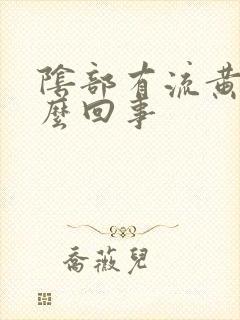 陰部有流黃
麼回事
喬薇兒